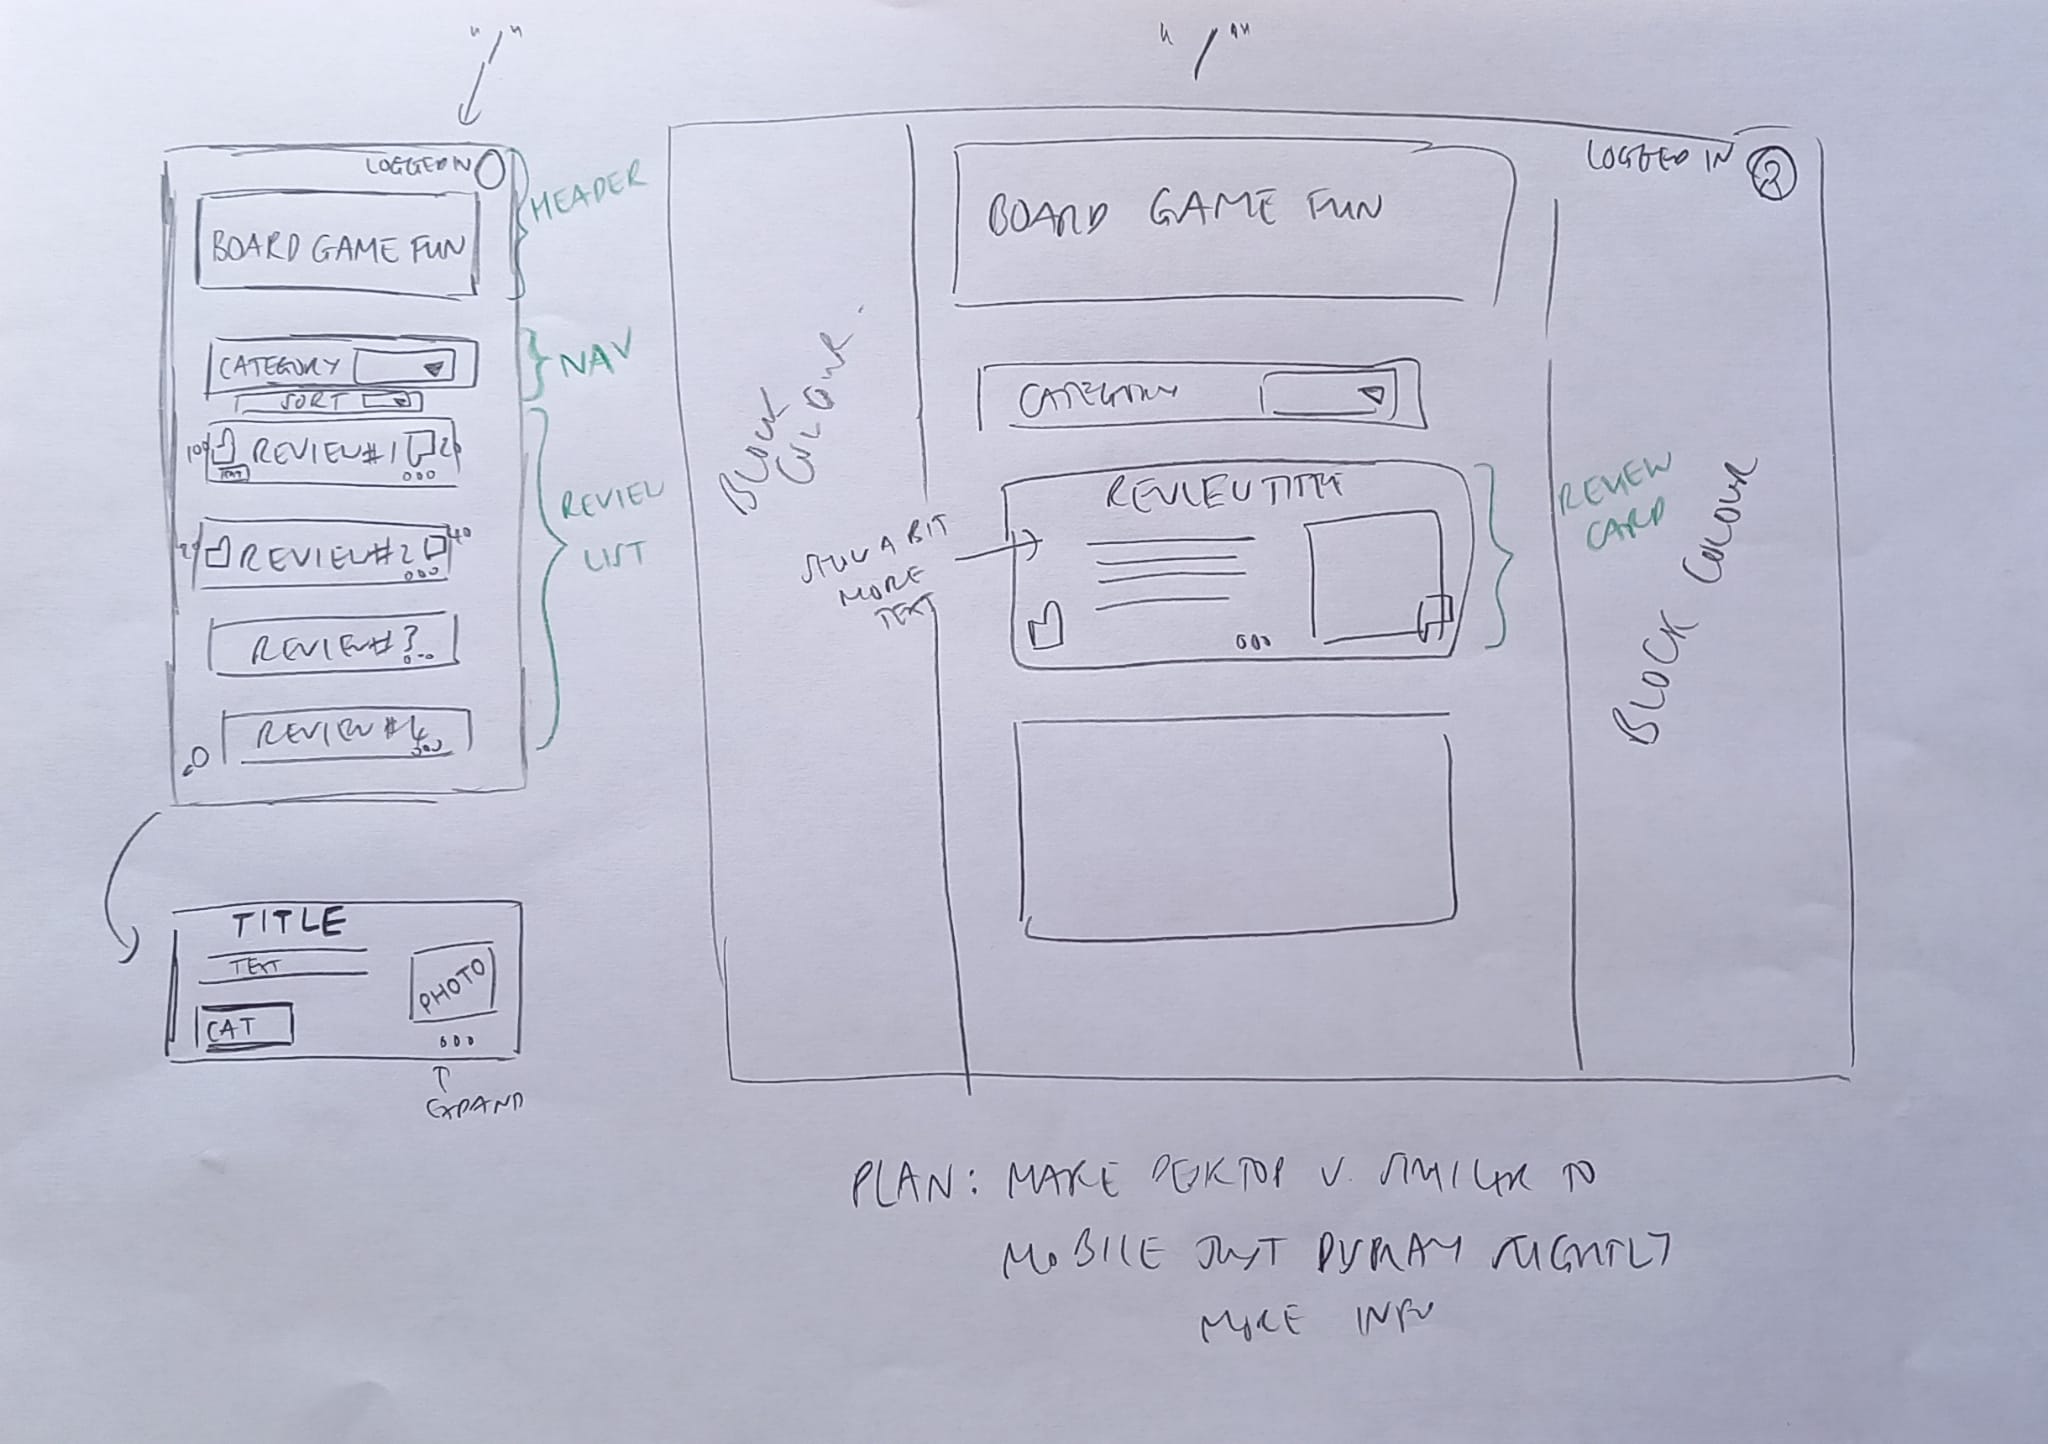 "/"
LOGGED IN
BOARD GAME FUN
HEADER
CATEGORY
NAV
SORT
REVIEW#1
TEXT
REVIEW
LIST
REVIEW#2
40
REVIEW#3
REVIEW#4
TITLE
TEXT
CAT
PHOTO
EXPAND
"/"
LOGGED IN
BOARD GAME FUN
BLOCK
COLOUR.
CATEGORY
REVIEW TITLE
SHOW A BIT
MORE
TEXT
REVIEW
CARD
BLOCK COLOUR
PLAN: MAKE DESKTOP V. SIMILAR TO
MOBILE JUST DISPLAY SLIGHTLY
MORE INFO